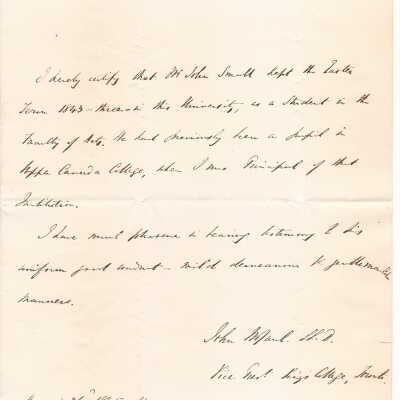 I hereby certify that Mr John Small kept the Easter
Term 1843 - therein in this University, as a Student in the
Faculty of Arts. He had previously been a pupil in
Upper Canada College, when I was Principal of that
Institution.
I have much pleasure in bearing testimony to his
uniform good conduct - mild demeanour & gentlemanlike
manners.
John McCaul LL.D.
Vice Prest King's College,